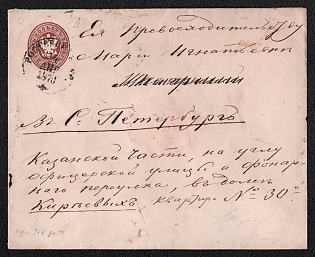 Ея Превосходительству
Марiи Игнатьевнѣ
Въ С. Петербургъ
Казанской части, на углу
Офицерской улицы и фонар-
наго переулка, въ домѣ
Кирѣевыхъ, квартира № 30
1870